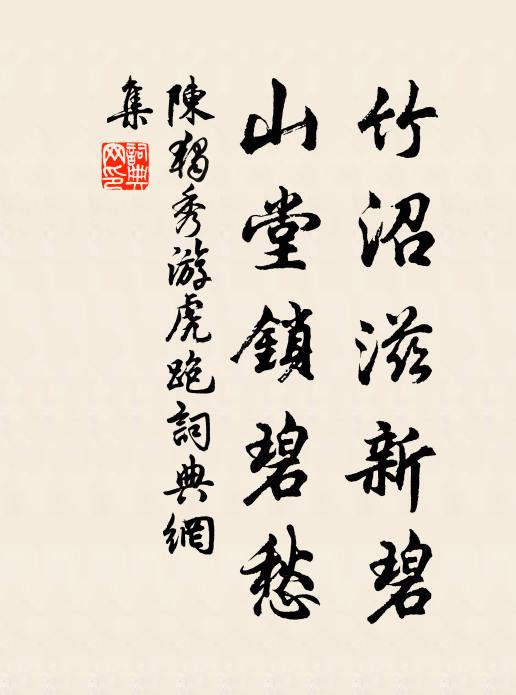 竹沼滋新碧
山堂鎖碧愁
陳獨秀游虎跑詞典網
集
詞典網印